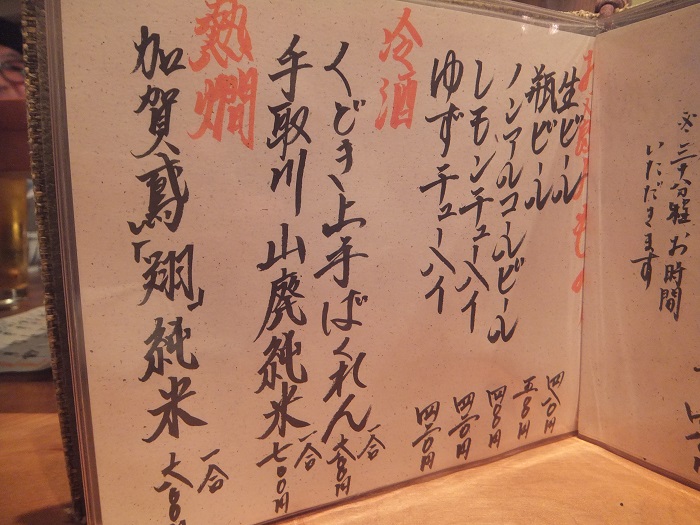 ※三十分程お時間
いただきます
おのみもの
生ビール 四八〇円
瓶ビール 五八〇円
ノンアルコールビール 四〇〇円
レモンチューハイ 四二〇円
ゆずチューハイ 四二〇円
冷酒
くどき上手ばくれん 一合
手取川山廃純米 一合 七〇〇円
熱燗
加賀鳶「翔」純米 一合